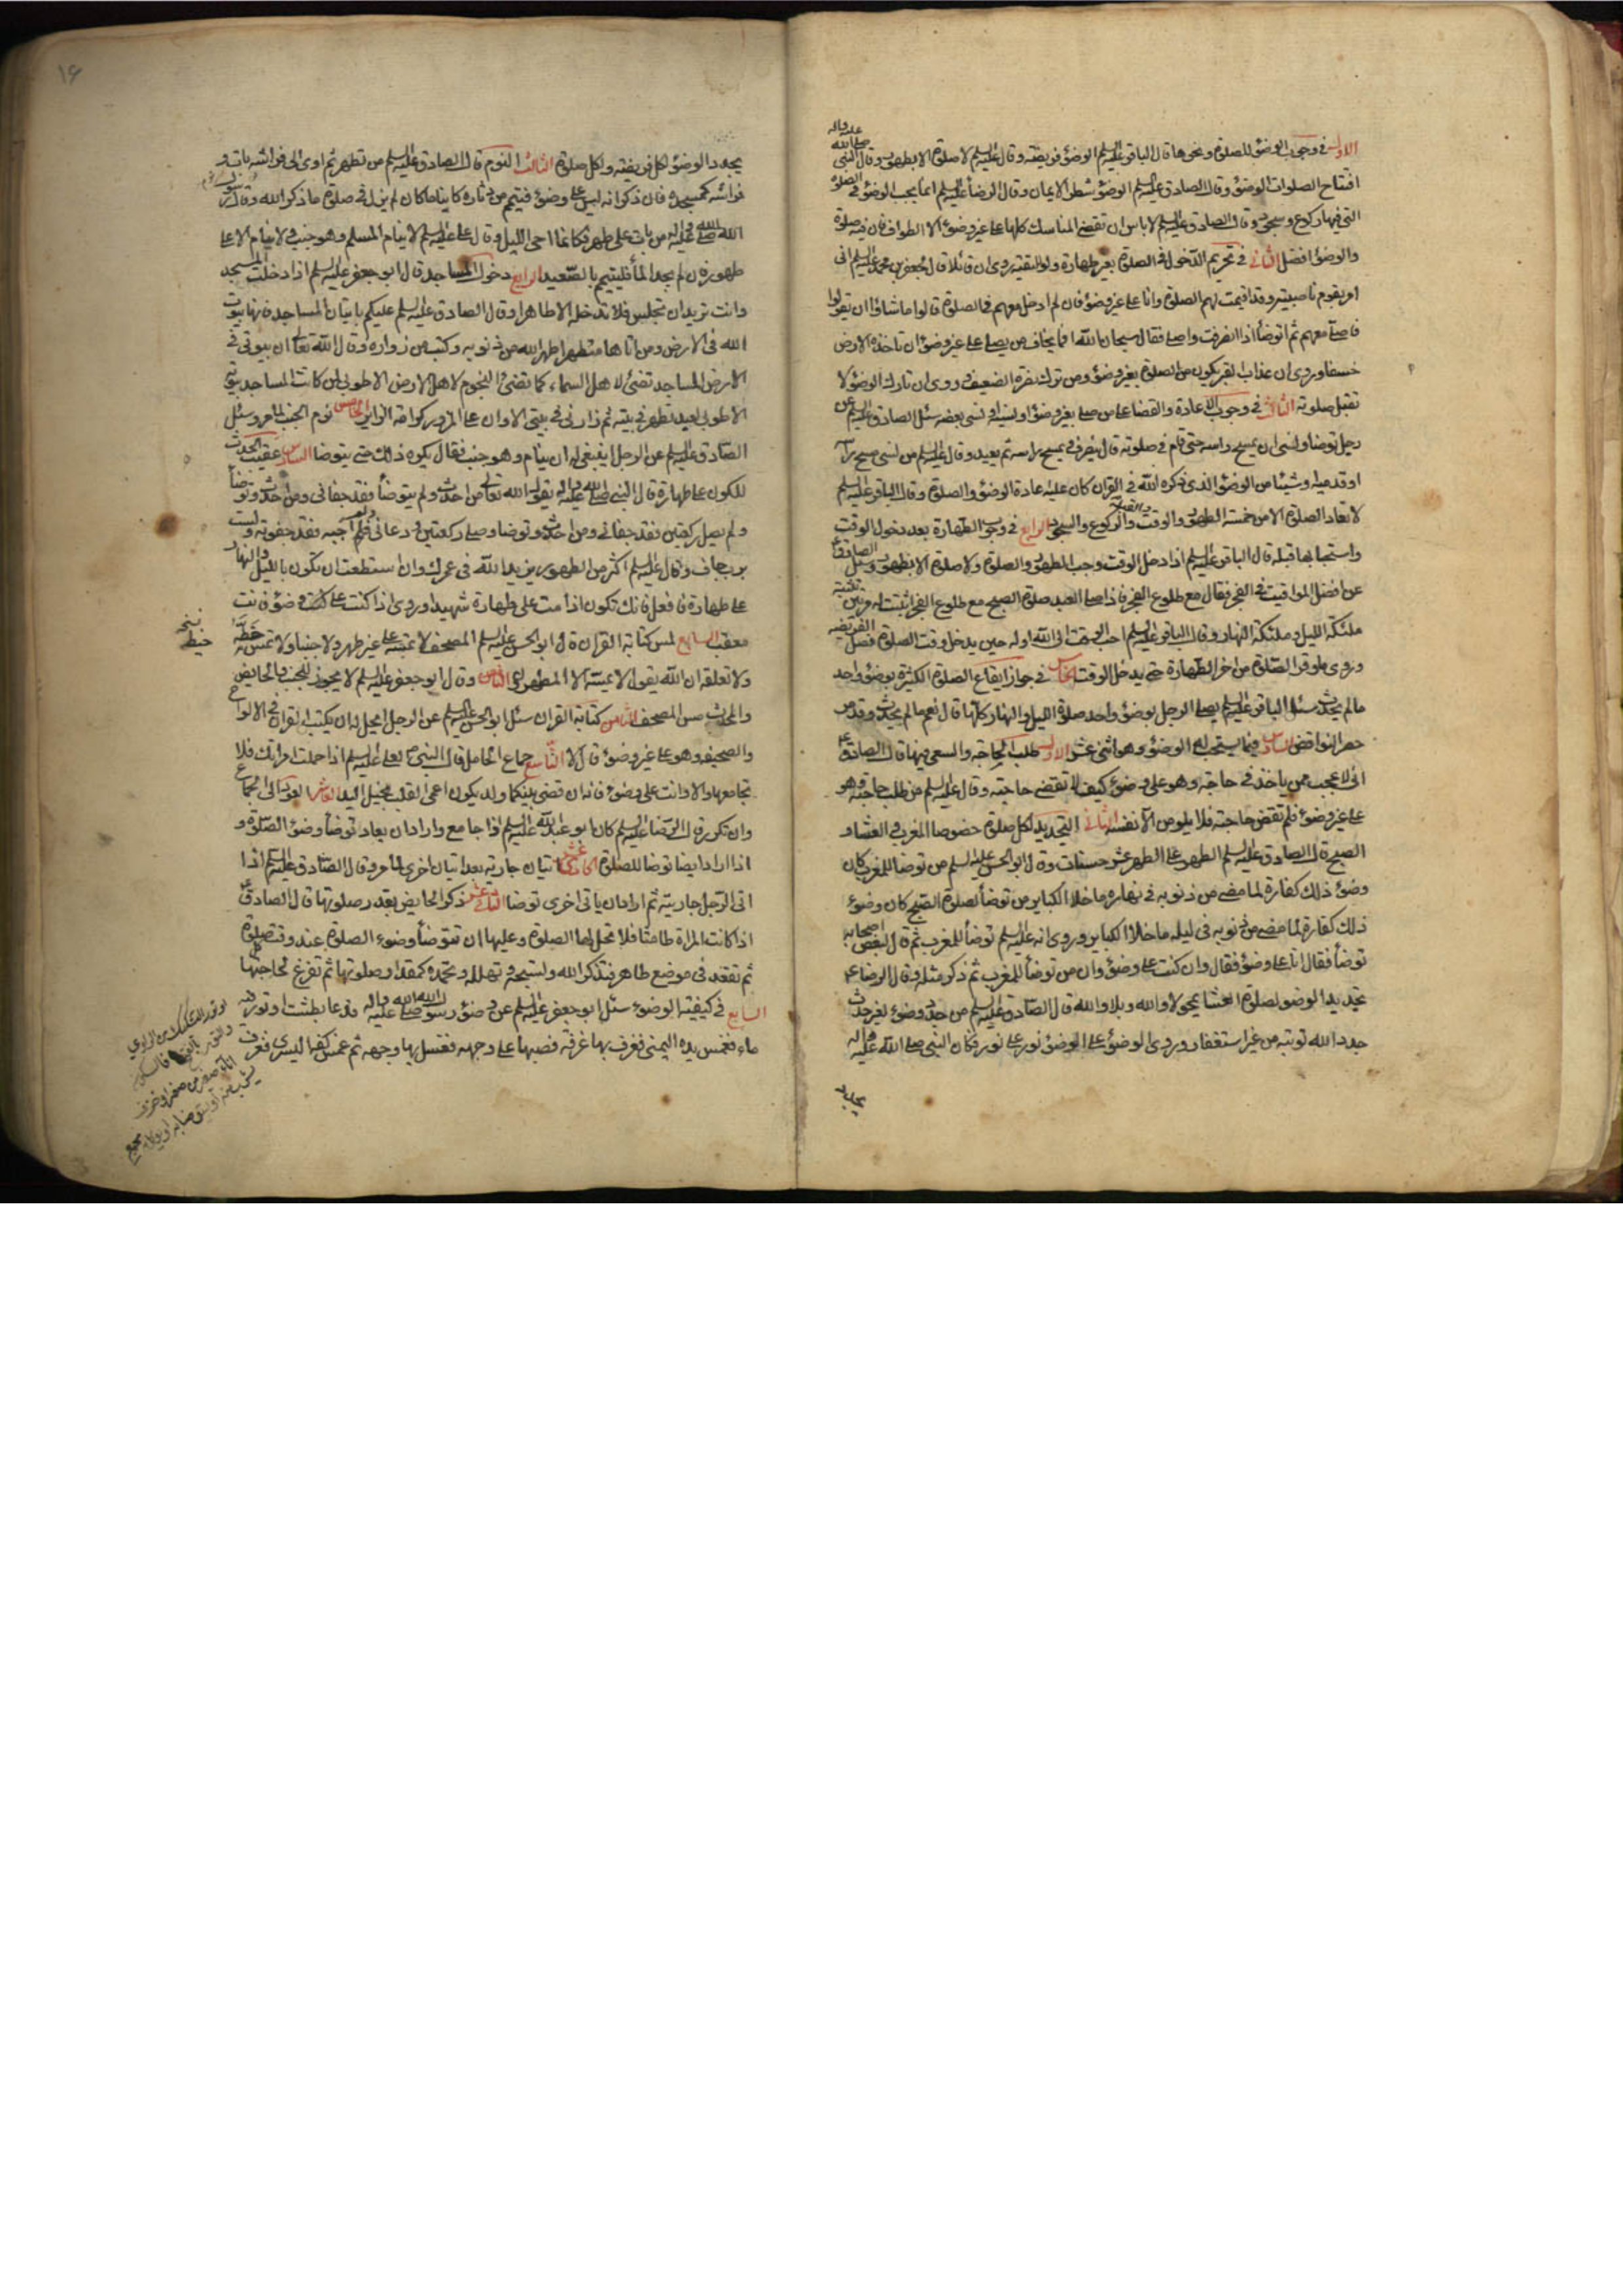 الاول في وجوب الوضؤ للصلوة ونحوها قال الباقر عليه السلم الوضؤ فريضة وقال عليه السلم لا صلوة الا بطهور وقال النبي صلى الله عليه واله
افتتاح الصلوات الوضؤ وقال الصادق عليه السلم الوضؤ شطر الايمان وقال الرضا عليه السلم انما يجب الوضؤ في الصلوة
التي فيها ركوع وسجود وقال الصادق عليه السلم لا باس ان تقضي المناسك كلها على غير وضؤ الا الطواف فان فيه صلوة
والوضؤ افضل الثاني في تحريم الدخول في الصلوة بغير طهارة ولو لتقية روى ان قائلا قال لجعفر بن محمد عليه السلم اني
امر بقوم ناصبية وقد اقيمت لهم الصلوة وانا على غير وضؤ فان لم ادخل معهم في الصلوة قالوا ما شاؤا ان يقولوا
فاصلي معهم ثم اتوضأ اذا انصرفت واصلي فقال سبحان الله افما يخاف من يصلي على غير وضؤ ان تاخذه الارض
خسفا وروى ان عذاب القبر يكون من الصلوة بغير وضؤ ومن ترك نصرة الضعيف وروى ان تارك الوضؤ لا
تقبل صلوته الثالث في وجوب الاعادة والقضا على من صلى بغير وضؤ او نسيه او نسي بعضه سئل الصادق عليه السلم عن
رجل توضا ونسى ان يمسح راسه حتى قام في صلوته قال ينصرف يمسح راسه ثم يعيد وقال عليه السلم من نسي مسح راسه
او قدميه او شيئا من الوضؤ الذي ذكره الله في القران كان عليه اعادة الوضؤ والصلوة وقال الباقر عليه السلم
لا تعاد الصلوة الا من خمسة الطهور والوقت والقبلة والركوع والسجود الرابع في وجوب الطهارة بعد دخول الوقت
واستحبابها قبله قال الباقر عليه السلم اذا دخل الوقت وجب الطهور والصلوة ولا صلوة الا بطهور وسئل الصادق ع
عن افضل المواقيت في الفجر فقال مع طلوع الفجر فاذا صلى العبد صلوة الصبح مع طلوع الفجر اثبتت له مرتين تثبته
ملئكة الليل وملئكة النهار وقال الباقر عليه السلم احب الوقت الى الله اوله حين يدخل وقت الصلوة فصل الفريضة
وروى ما وقر الصلوة من اخر الطهارة حتى يدخل الوقت الخامس في جواز ايقاع الصلوة الكثيرة بوضؤ واحد
ما لم يحدث سئل الباقر عليه السلم يصلي الرجل بوضؤ واحد صلوة الليل والنهار كلها قال نعم ما لم يحدث وقد مر
حصر النواقض السادس فيما يستحب له الوضؤ وهو اثنى عشر الاول طلب الحاجة والسعي فيها قال الصادق ع
اني لاعجب ممن ياخذ في حاجة وهو على وضؤ كيف لا تقضى حاجته وقال عليه السلم من طلب حاجة وهو
على غير وضؤ فلم تقض حاجته فلا يلومن الا نفسه الثاني التجديد لكل صلوة خصوصا المغرب والعشاء و
الصبح قال الصادق عليه السلم الطهر على الطهر عشر حسنات وقال ابو الحسن عليه السلم من توضا للمغرب كان
وضؤه ذلك كفارة لما مضى من ذنوبه في نهاره ما خلا الكباير ومن توضأ لصلوة الصبح كان وضوءه
ذلك كفارة لما مضى من ذنوبه في ليله ما خلا الكباير وروى انه عليه السلم توضأ للمغرب ثم قال لبعض اصحابه
توضأ فقال انا على وضؤ فقال وان كنت على وضؤ وان من توضأ للمغرب ثم ذكر مثله وقال الرضا ع
تجديد الوضؤ لصلوة العشا يمحو لا والله وبلى والله قال الصادق عليه السلم من جدد وضوءه لغير حدث
جدد الله توبته من غير استغفار وروى الوضؤ على الوضؤ نور على نور وكان النبي صلى الله عليه واله
يجدد
١۶
يجدد الوضؤ لكل فريضة ولكل صلوة الثالث النوم قال الصادق عليه السلم من تطهر ثم اوى الى فراشه بات و
فراشه كمسجده فان ذكر انه ليس على وضؤ فتيمم من دثاره كاينا ما كان لم يزل في صلوة ما ذكر الله وقال رسول
الله صلى الله عليه واله من بات على طهر فكانما احيى الليل وقال علي عليه السلم لا ينام المسلم وهو جنب ولا ينام الا على
طهور فان لم يجد الماء فليتيمم بالصعيد الرابع دخول المساجد قال ابو جعفر عليه السلم اذا دخلت المسجد
وانت تريد ان تجلس فلا تدخله الا طاهرا وقال الصادق عليه السلم عليكم باتيان المساجد فانها بيوت
الله في الارض ومن اتاها متطهرا طهره الله من ذنوبه وكتب من زواره وقال الله تعالى ان بيوتي في
الارض المساجد تضئ لاهل السماء كما تضئ النجوم لاهل الارض الا طوبى لمن كانت المساجد بيوته
الا طوبى لعبد تطهر في بيته ثم زارني في بيتي الا وان على المزور كرامة الزاير الخامس نوم الجنب لما مر وسئل
الصادق عليه السلم عن الرجل اينبغي له ان ينام وهو جنب فقال يكره ذلك حتى يتوضا السادس عقيب الحدث
للكون على طهارة قال النبي صلى الله عليه واله يقول الله تعالى من احدث ولم يتوضأ فقد جفاني ومن احدث وتوضأ
ولم يصل ركعتين فقد جفاني ومن احدث وتوضا وصلى ركعتين ودعاني فلم اجبه فقد جفوته ولست
برب جاف وقال عليه السلم اكثر من الطهور يزيد الله في عمرك وان استطعت ان تكون بالليل والنهار
على طهارة فافعل فانك تكون اذا مت على طهارة شهيدا وروى اذا كنت على وضؤ فانت
معقب السابع لمس كتابة القران قال ابو الحسن عليه السلم المصحف لا تمسه على غير طهر ولا جنبا ولا تمس خطه
ولا تعلقه ان الله يقول لا يمسه الا المطهرون وقال ابو جعفر عليه السلم لا يجوز للجنب والحايض
والمحدث مس المصحف الثامن كتابة القران سئل ابو الحسن عليه السلم عن الرجل ايحل له ان يكتب القران في الالواح
والصحيفة وهو على غير وضؤ قال لا التاسع جماع الحامل قال النبي ص لعلي عليه السلم اذا حملت امراتك فلا
تجامعها الا وانت على وضؤ فانه ان قضي بينكما ولد يكون اعمى القلب بخيل اليد العاشر العود الى الجماع
وان تكرر قال الرضا عليه السلم كان ابو عبد الله عليه السلم اذا جامع واراد ان يعاود توضأ وضؤ الصلوة و
اذا اراد ايضا توضا للصلوة الحادي عشر اتيان جارية بعد اتيان اخرى لما مر وقال الصادق عليه السلم اذا
اتى الرجل جاريته ثم اراد ان ياتي اخرى توضا الثاني عشر ذكر الحايض بقدر صلوتها قال الصادق ع
اذا كانت المراة طامثا فلا تحل لها الصلوة وعليها ان تتوضأ وضوء الصلوة عند وقت كل صلوة
ثم تقعد في موضع طاهر فتذكر الله وتسبحه وتهلله وتحمده كمقدار صلوتها ثم تفرغ لحاجتها
السابع في كيفية الوضوء سئل ابو جعفر عليه السلم عن وضؤ رسول الله صلى الله عليه واله فدعا بطشت او تور فيه
ماء فغمس يده اليمنى فغرف بها غرفة فصبها على وجهه فغسل بها وجهه ثم غمس كفه اليسرى فغرف
نسخه
خيطه